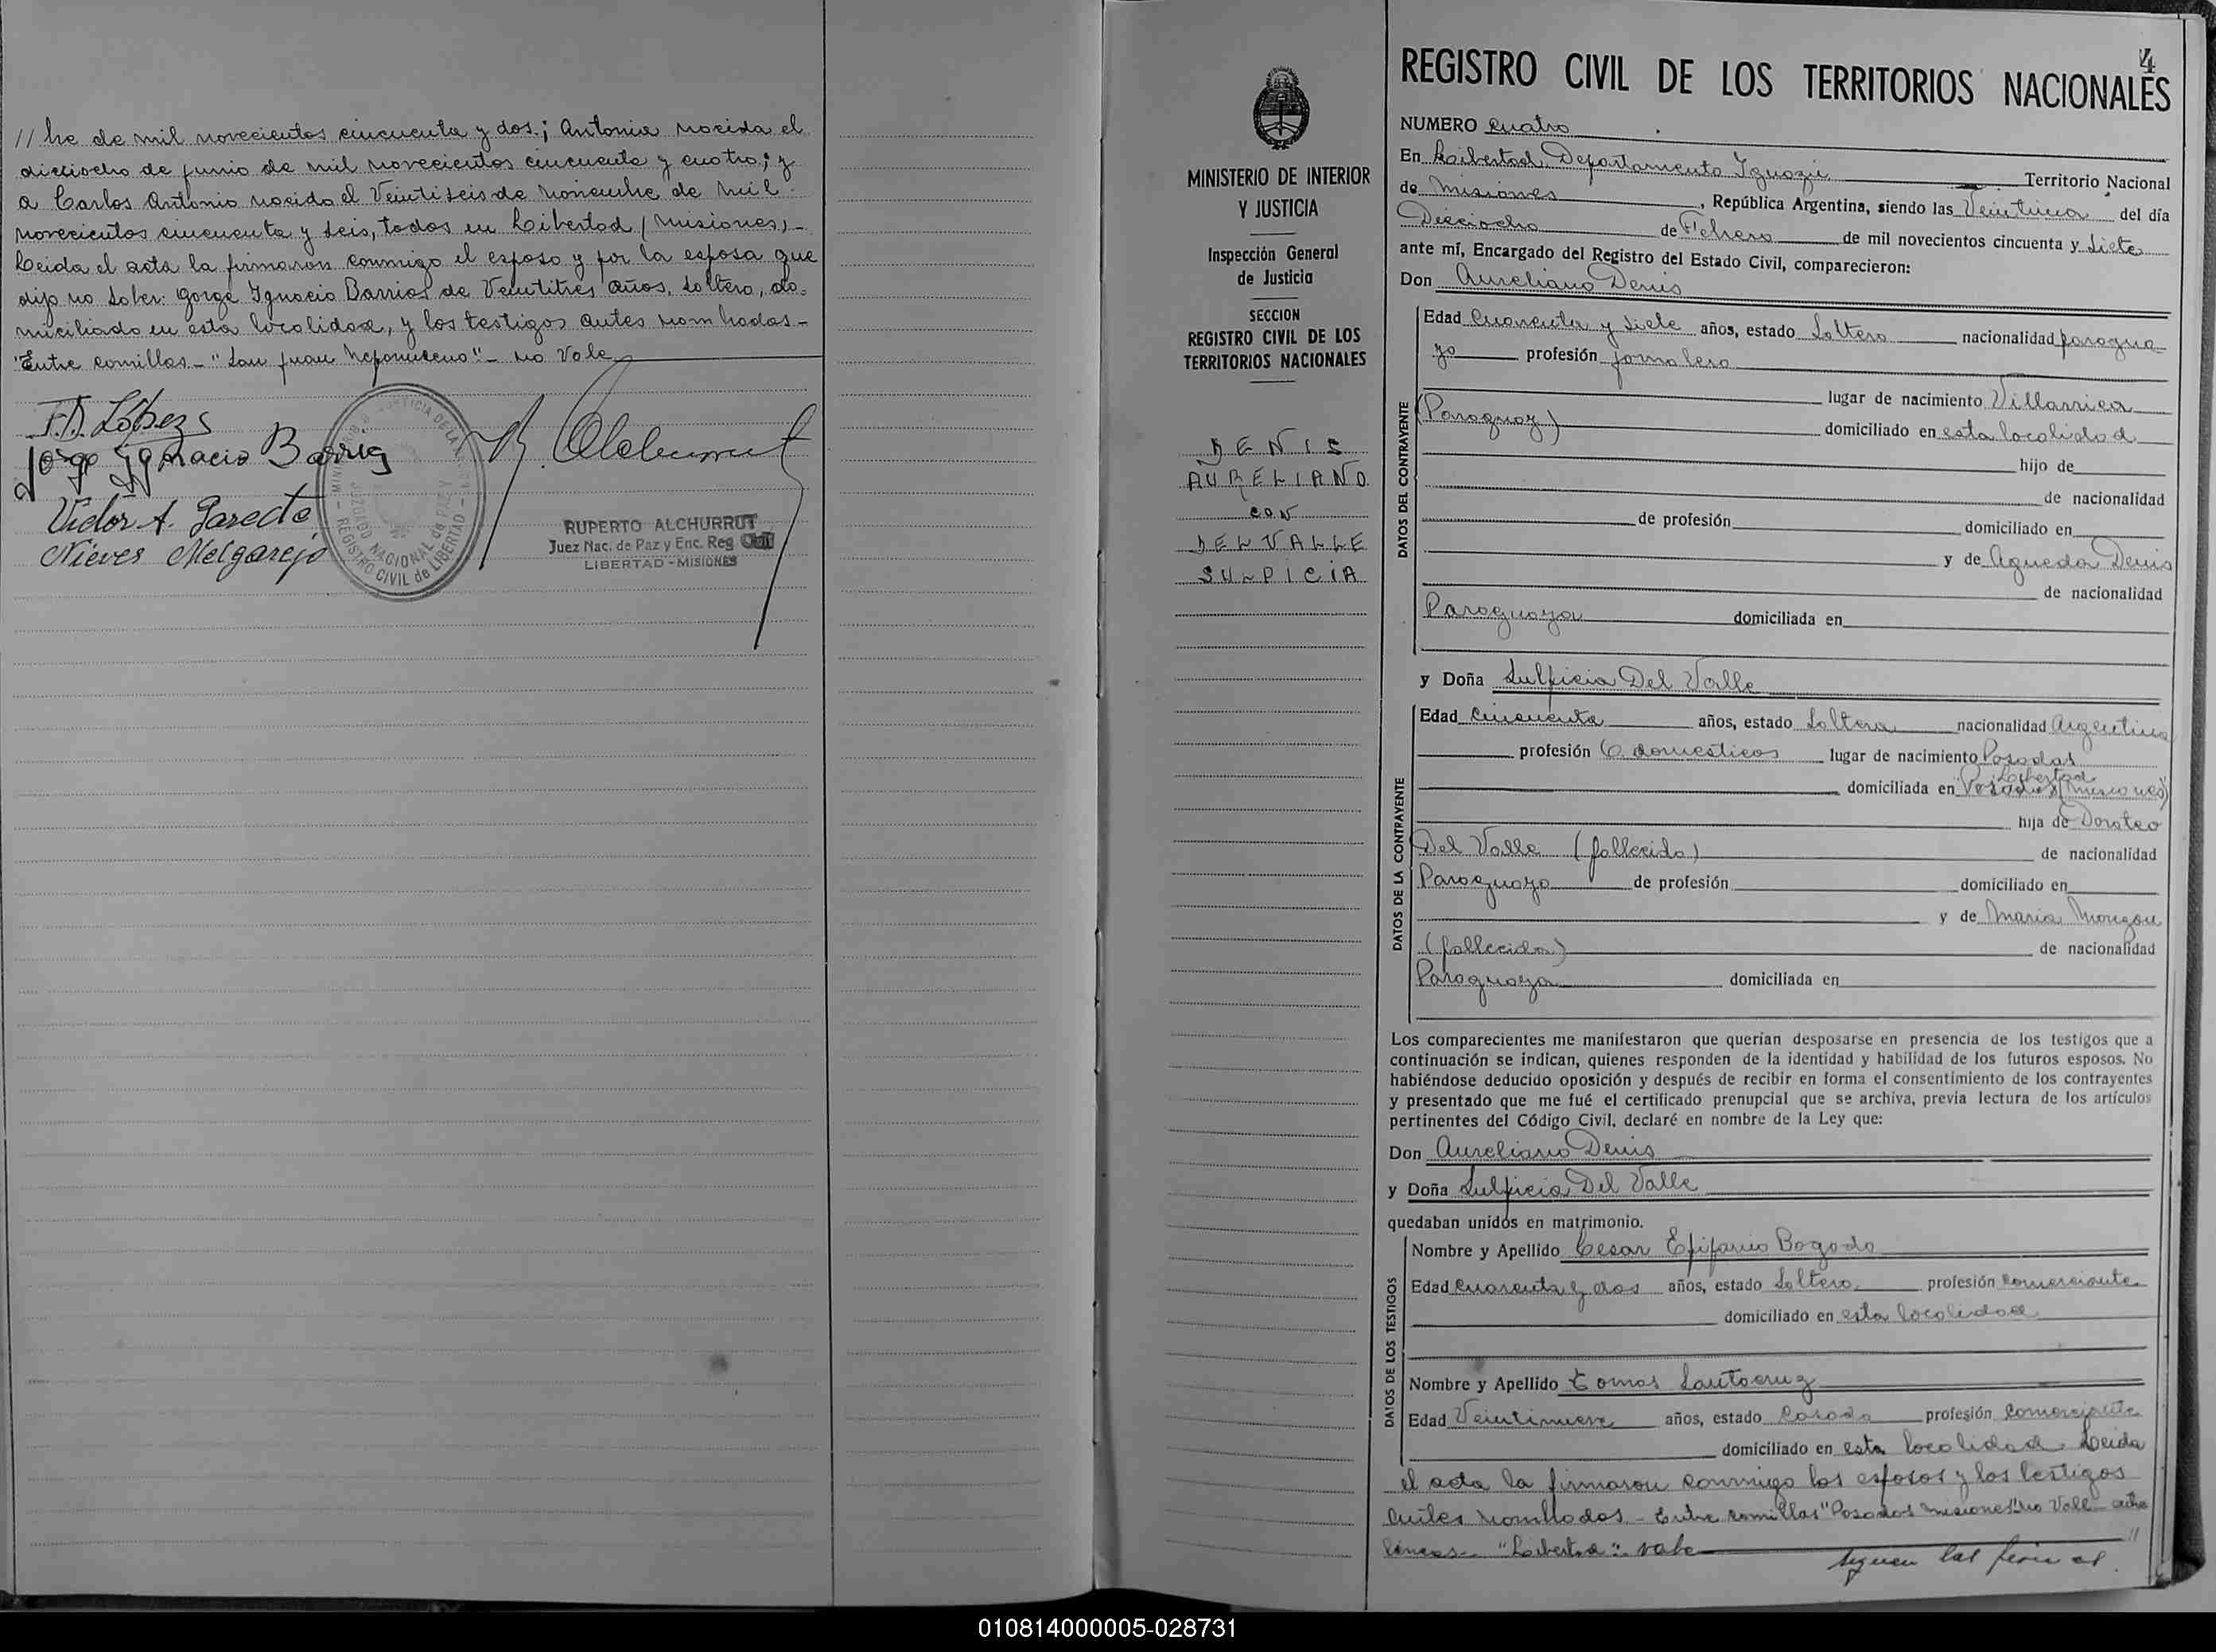 // bre de mil novecientos cincuenta y dos.; Antonia nacida el
dieciocho de junio de mil novecientos cincuenta y cuatro; y
a Carlos Antonio nacido el Veintiseis de noviembre de mil
novecientos cincuenta y seis, todos en Libertad (Misiones)-
Leida el acta la firmaron conmigo el esposo y por la esposa que
dijo no saber: Jorge Ignacio Barrios de Veintitres años, soltero, do-
miciliado en esta localidad, y los testigos antes nombrados-
"Entre comillas- "San Juan Nepomuceno"- no vale
J.D. López
Jorge Ignacio Barrios
Victor A. Garecte
Nieves Melgarejo
REGISTRO CIVIL de LIBERTAD
JUZGADO NACIONAL de PAZ Y
R. Alchurrut
RUPERTO ALCHURRUT
Juez Nac. de Paz y Enc. Reg. Civil
LIBERTAD - MISIONES
MINISTERIO DE INTERIOR
Y JUSTICIA
Inspección General
de Justicia
SECCION
REGISTRO CIVIL DE LOS
TERRITORIOS NACIONALES
DENIS
AURELIANO
CON
DEL VALLE
SULPICIA
4
REGISTRO CIVIL DE LOS TERRITORIOS NACIONALES
NUMERO Cuatro
En Libertad, Departamento Iguazú Territorio Nacional
de Misiones, República Argentina, siendo las Veintiuna del día
Dieciocho de Febrero de mil novecientos cincuenta y Siete
ante mí, Encargado del Registro del Estado Civil, comparecieron:
Don Aureliano Denis
DATOS DEL CONTRAYENTE
Edad Cuarenta y siete años, estado Soltero nacionalidad paragua-
yo profesión jornalero
lugar de nacimiento Villarrica
(Paraguay) domiciliado en esta localidad
hijo de
de nacionalidad
de profesión domiciliado en
y de Agueda Denis
de nacionalidad
Paraguaya domiciliada en
y Doña Sulpicia Del Valle
DATOS DE LA CONTRAYENTE
Edad Cincuenta años, estado Soltera nacionalidad Argentina
profesión Q. domésticos lugar de nacimiento Posadas
Libertad
domiciliada en "Posadas (Misiones)"
hija de Doroteo
Del Valle (fallecido) de nacionalidad
Paraguayo de profesión domiciliado en
y de Maria
(fallecida) de nacionalidad
Paraguaya domiciliada en
Los comparecientes me manifestaron que querían desposarse en presencia de los testigos que a
continuación se indican, quienes responden de la identidad y habilidad de los futuros esposos. No
habiéndose deducido oposición y después de recibir en forma el consentimiento de los contrayentes
y presentado que me fué el certificado prenupcial que se archiva, previa lectura de los artículos
pertinentes del Código Civil, declaré en nombre de la Ley que:
Don Aureliano Denis
y Doña Sulpicia Del Valle
quedaban unidos en matrimonio.
DATOS DE LOS TESTIGOS
Nombre y Apellido Cesar Epifanio Bogado
Edad Cuarenta y dos años, estado Soltero profesión comerciante
domiciliado en esta localidad
Nombre y Apellido Tomas Santacruz
Edad Veintinueve años, estado Casado profesión Comerciante
domiciliado en esta localidad. Leida
el acta la firmaron conmigo los esposos y los testigos
antes nombrados.- Entre comillas "Posadas Misiones" no Vale
lineas- "Libertad": vale //
siguen las firmas
010814000005-028731